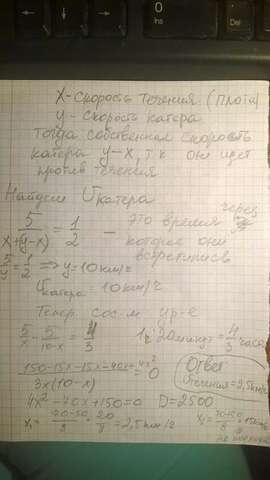 0
Ins
x - скорость течения (плота)
y - скорость катера
Тогда собственная скорость
катера y-x, т.к они идет
против течения
Найдем υ катера
5/(x+(y-x)) = 1/2 - это время через
которое они
встретились
5/y = 1/2 ⇒ y=10 км/ч
υ катера = 10 км/ч
Тепер. сос-м ур-е
5/x - 5/(10-x) = 4/3 1ч 20минут = 4/3 часа
(150-15x-15x-40x+4x²)/(3x(10-x)) = 0
Ответ
υтечения = 2,5км/ч
4x²-70x+150=0 D=2500
x₁ = (70-50)/8 = 20/8 = 2,5 км/ч
x₂ = (70+50)/8 = 15